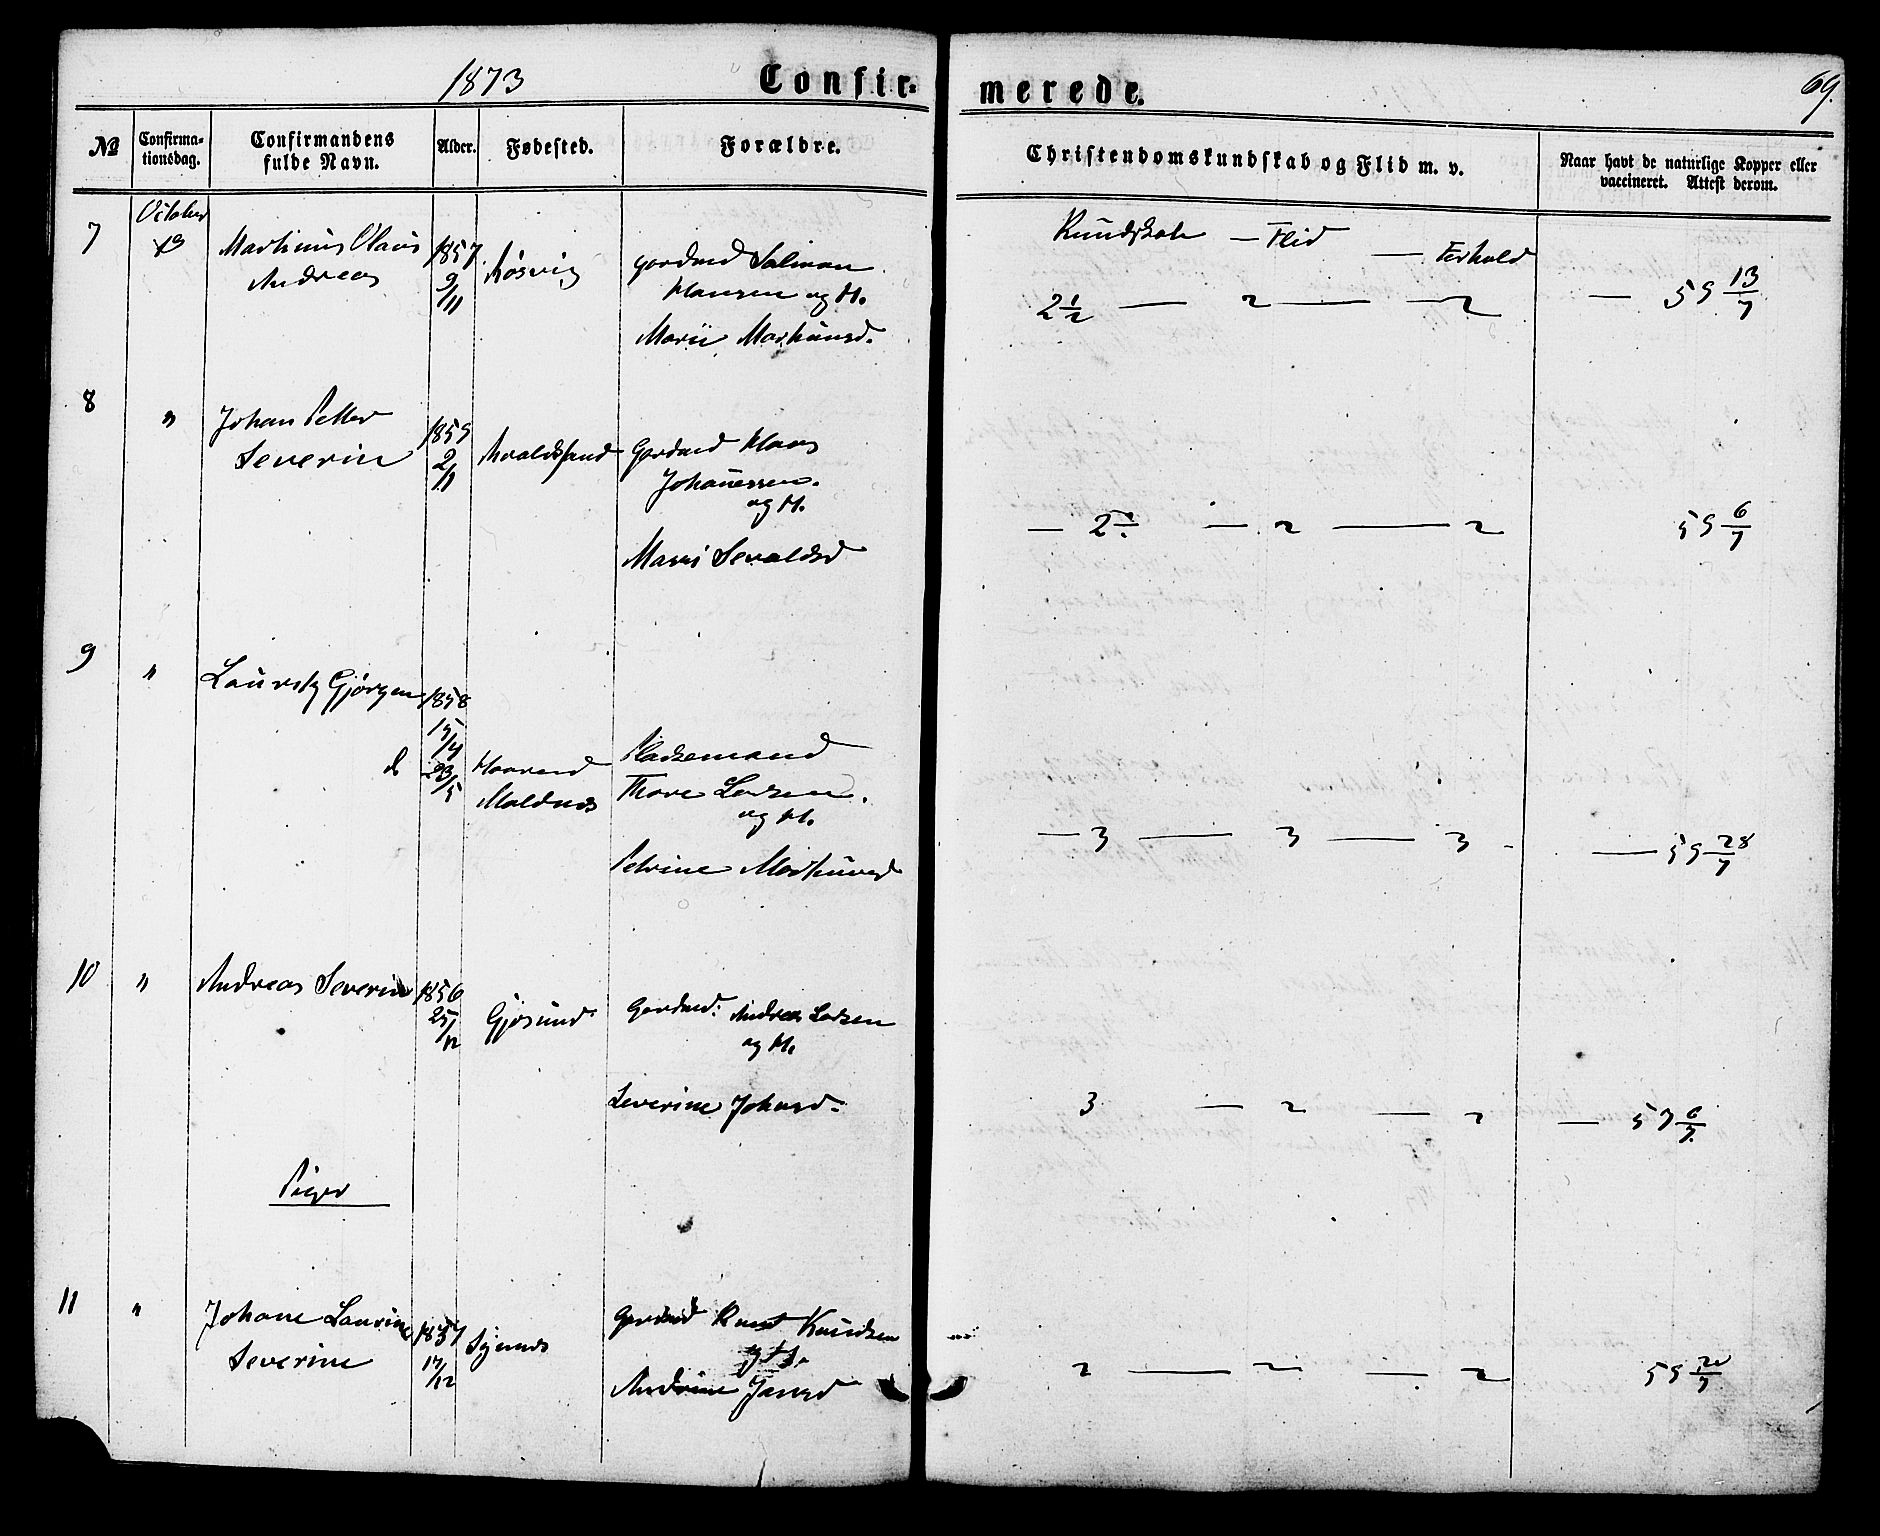 1873
Confir-
merede.
69.
No
Confirma-
tionsdag.
Confirmandens
fulde Navn.
Alder.
Fødested.
Forældre.
Christendomskundskab og Flid m. v.
Naar havt de naturlige Kopper eller
vaccineret. Attest derom.
Kundskab — Flid — Forhold
7
October
19
Martinus Olaus
Andreas
1857
9/11
Røsvig
Gardmd Salmon
Hansen og H.
Marii
2 1/2 — 2 — 2 — 59 13/7
8
"
Johan Petter
Severin
1859
2/1
Gardmd Hans
Johanessen.
og H.
Sevaldsd
— 2 — 2 — 2 59 6/7
9
"
Gjørgen
1858
15/4
d 23/5
Moldnes
Pladsemand
Thore Larsen.
og H.
Petrine
— 3 — 3 — 3 — 59 28/7
10
"
Andreas Severin
1856
25/12
Gjøsund
Gardmd: Andreas Larsen
og H.
Severine Johnsd.
3 — 2 — 2 — 57 6/7
Piger
11
"
Johane Laurine
Severine
1857
17/12
Synnes
Gardmd Knut Knudsen
Andrine Jensd
2 — 2 — 2 59 20/7